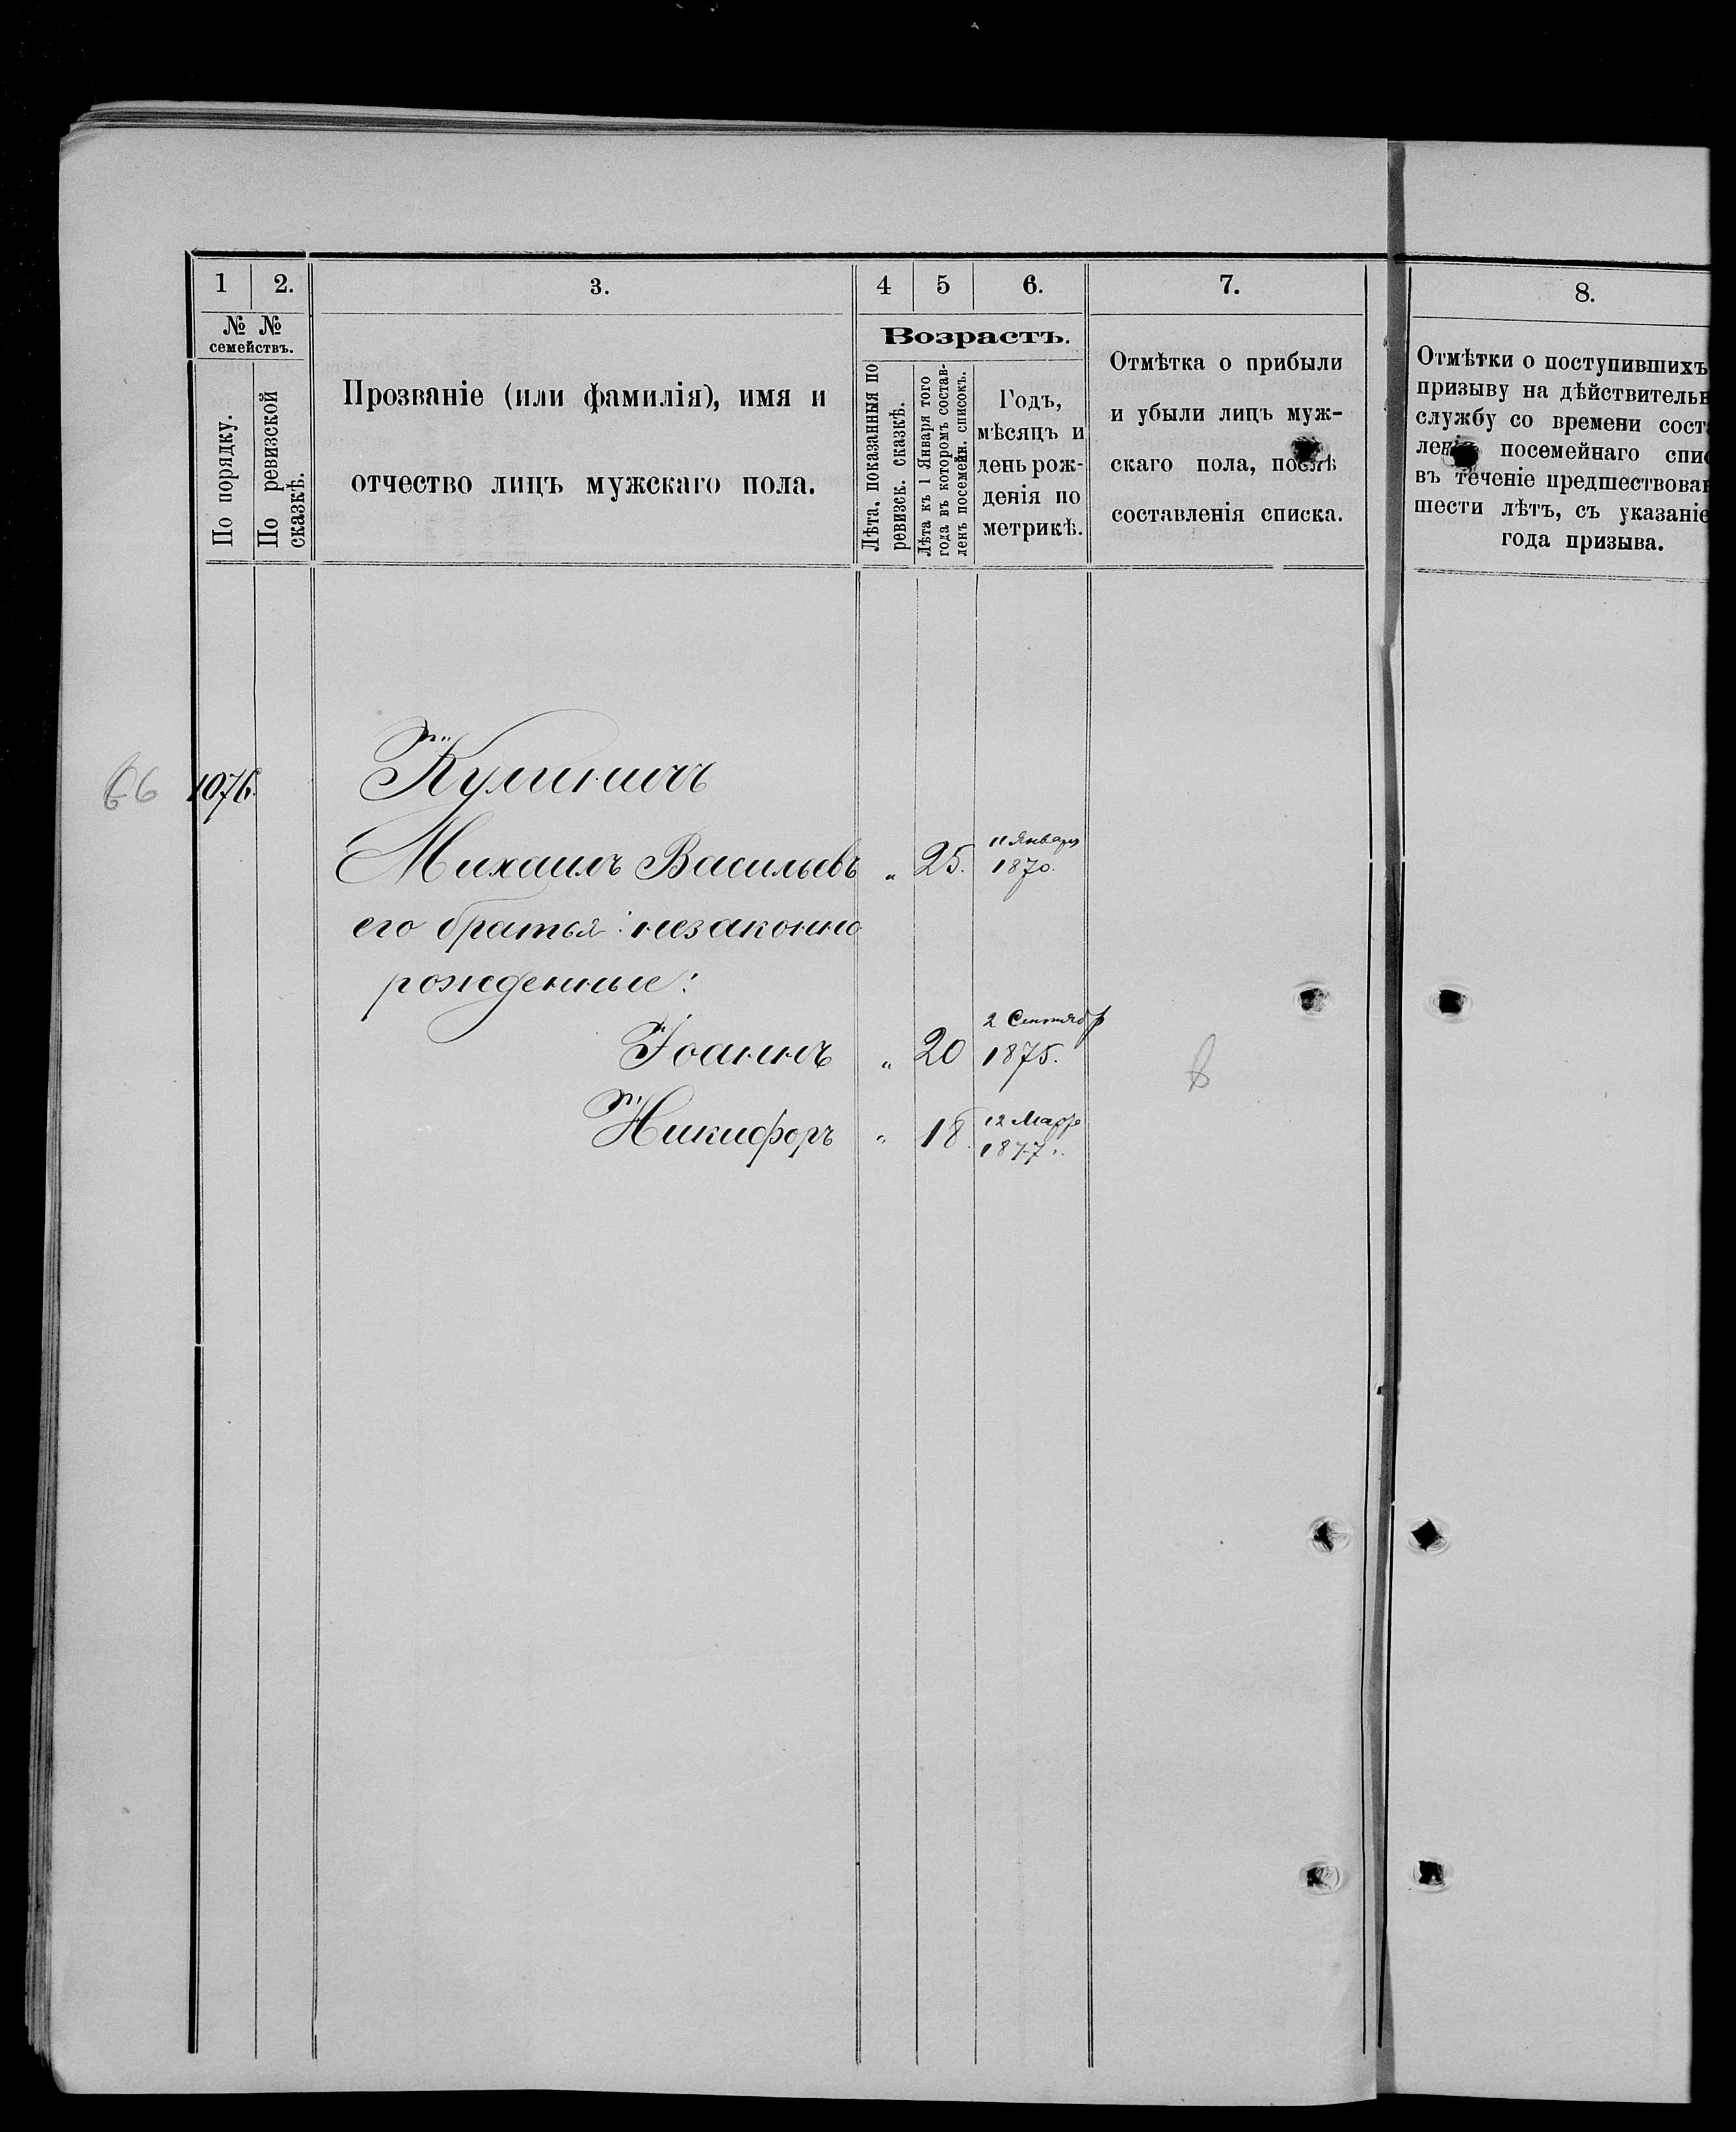 1 2. 3. 4 5 6. 7. 8.
№ № семействъ.
По порядку.
По ревизской сказкѣ.
Прозваніе (или фамилія), имя и
отчество лицъ мужскаго пола.
Возрастъ.
Лѣта, показанныя по
ревизск. сказкѣ.
Лѣта къ 1 Января того
года въ которомъ состав-
ленъ посемейн. списокъ.
Годъ,
мѣсяцъ и
день рож-
денія по
метрикѣ.
Отмѣтка о прибыли
и убыли лицъ муж-
скаго пола, послѣ
составленія списка.
Отмѣтки о поступившихъ
призыву на дѣйствительн
службу со времени сост
ленія посемейнаго спис
въ теченіе предшествова
шести лѣтъ, съ указаніе
года призыва.
66 1076. Кулиничъ
Михаилъ Васильевъ " 25. 11 Января
1870.
его братья: незаконно
рожденные:
Іоаннъ " 20 2 Сентябр
1875.
Никифоръ " 18. 12 Мар
1877.